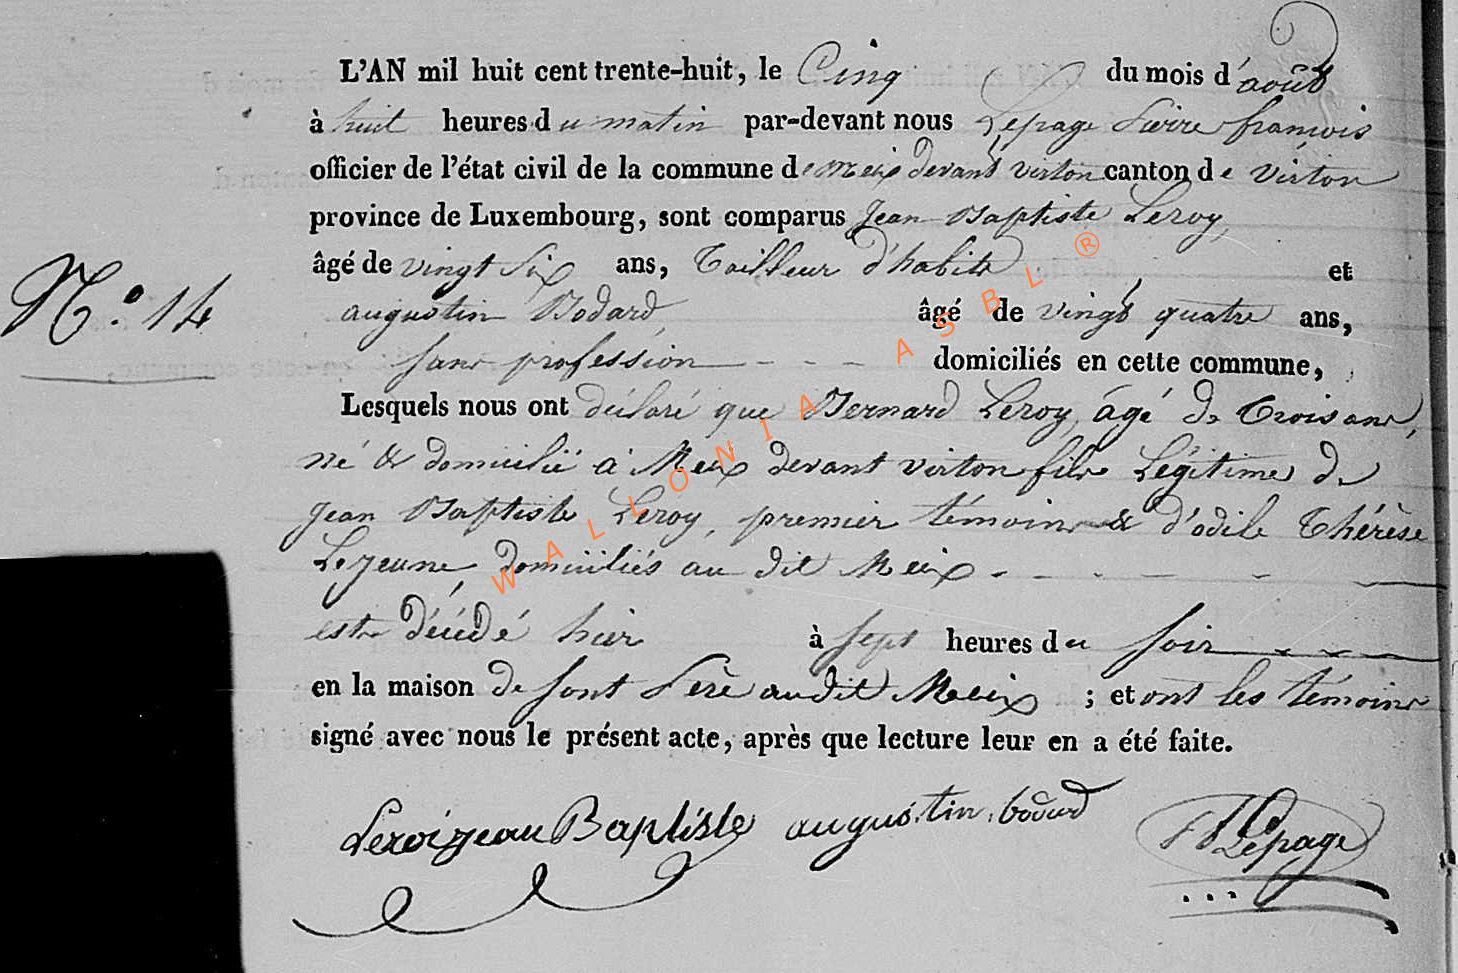 L'AN mil huit cent trente-huit, le Cinq du mois d'août
à huit heures du matin par-devant nous Lepage Pierre françois
officier de l'état civil de la commune de Meix devant virton canton de virton
province de Luxembourg, sont comparus Jean Baptiste Leroy,
âgé de vingt Six ans, Tailleur d'habits et
augustin Bodard, âgé de vingt quatre ans,
N.° 14
sans profession - - - domiciliés en cette commune,
Lesquels nous ont déclaré que Bernard Leroy, âgé de trois ans,
né & domicilié à Meix devant virton fils Légitime de
Jean Baptiste Leroy, premier témoin & d'odile Thérèse
Lejeune, domiciliés au dit Meix - - - -
est décédé hier à sept heures du soir
en la maison de sont Père audit Meix ; et ont les témoins
signé avec nous le présent acte, après que lecture leur en a été faite.
Leroi jean Baptiste augustin bodard Lepage
WALLONIA ASBL ®